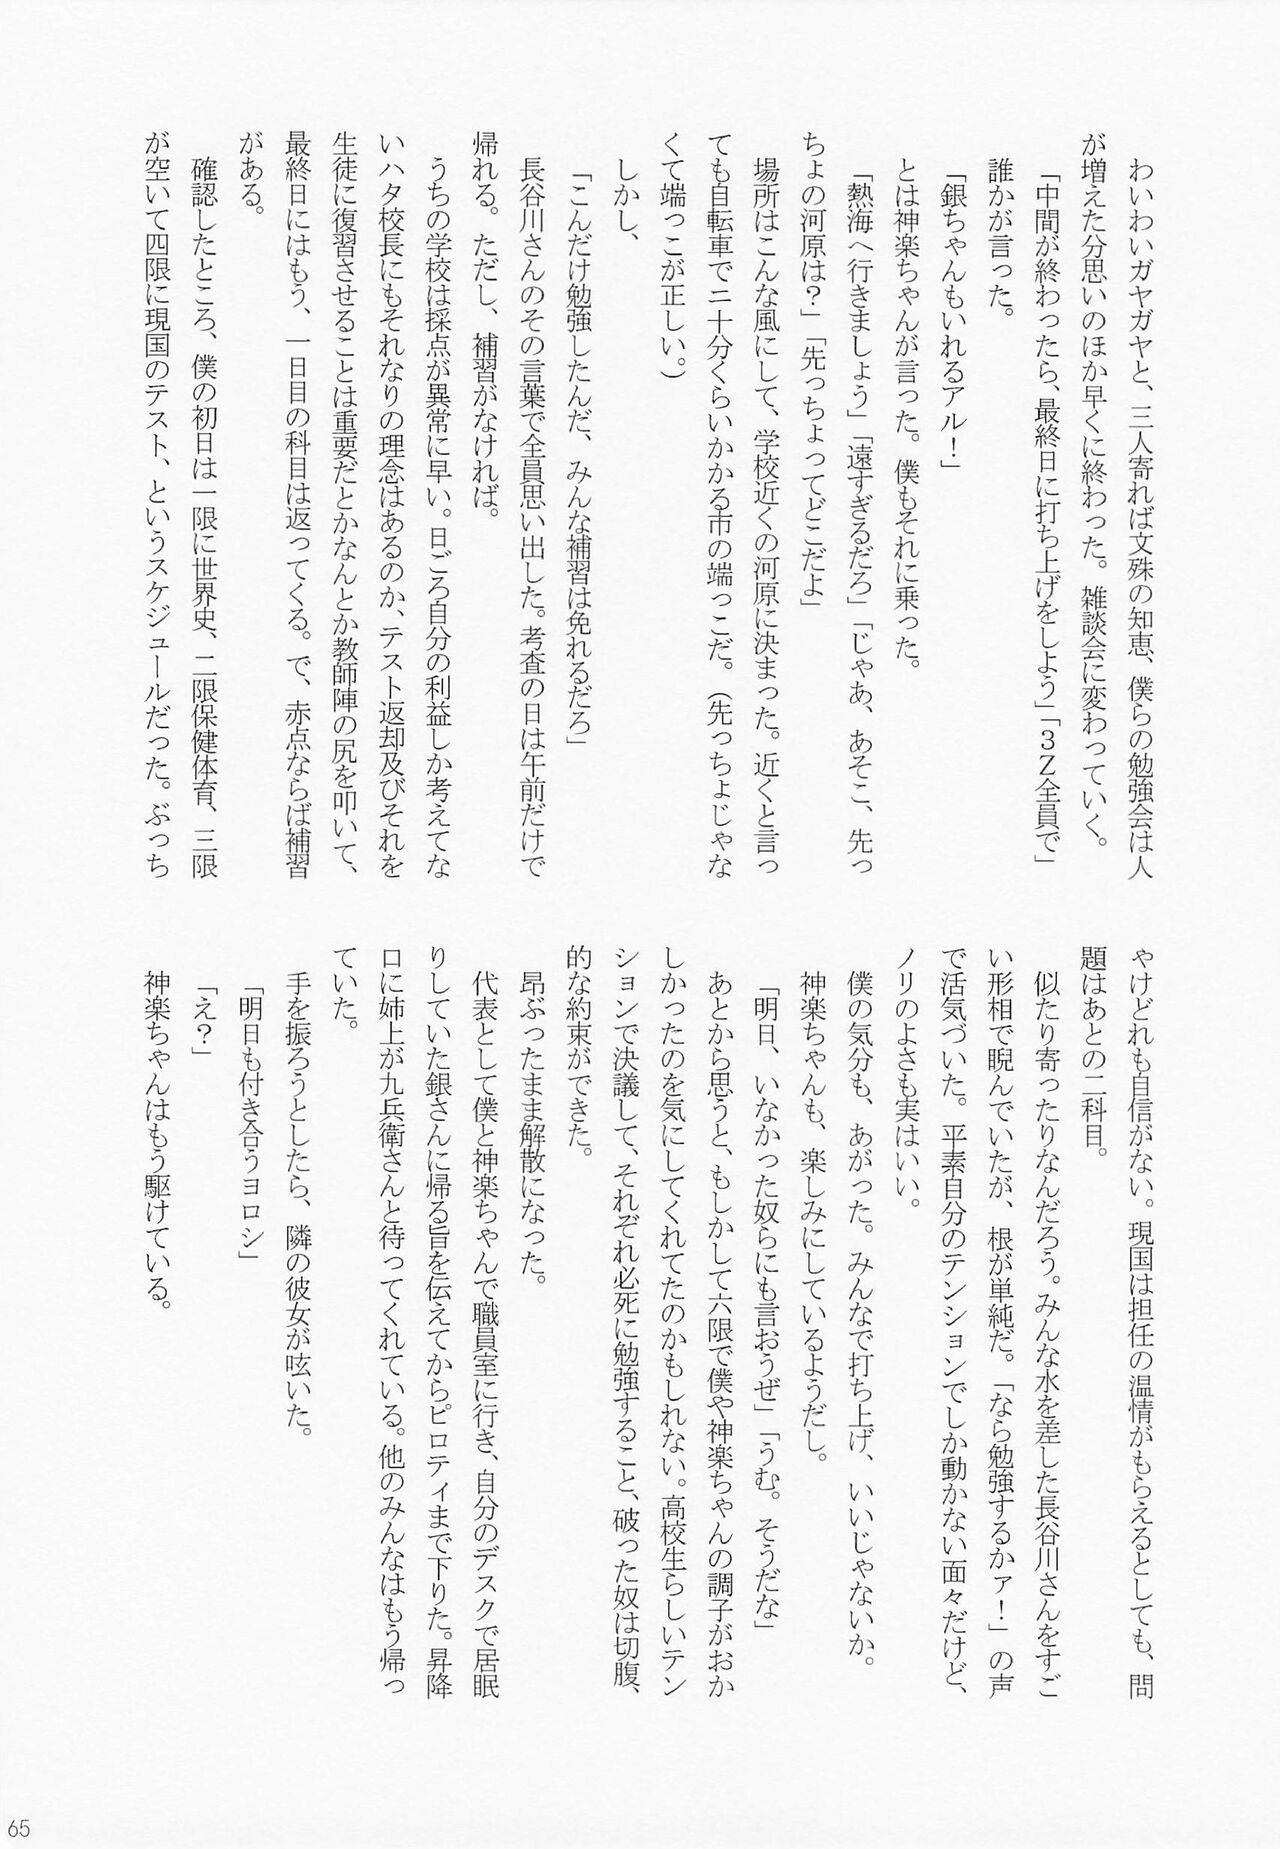 わいわいガヤガヤと、三人寄れば文殊の知恵、僕らの勉強会は人
が増えた分思いのほか早くに終わった。雑談会に変わっていく。
「中間が終わったら、最終日に打ち上げをしよう」「３Ｚ全員で」
誰かが言った。
「銀ちゃんもいれるアル！」
とは神楽ちゃんが言った。僕もそれに乗った。
「熱海へ行きましょう」「遠すぎるだろ」「じゃあ、あそこ、先っ
ちょの河原は？」「先っちょってどこだよ」
場所はこんな風にして、学校近くの河原に決まった。近くと言っ
ても自転車で二十分くらいかかる市の端っこだ。（先っちょじゃな
くて端っこが正しい。）
しかし、
「こんだけ勉強したんだ、みんな補習は免れるだろ」
長谷川さんのその言葉で全員思い出した。考査の日は午前だけで
帰れる。ただし、補習がなければ。
うちの学校は採点が異常に早い。日ごろ自分の利益しか考えてな
いハタ校長にもそれなりの理念はあるのか、テスト返却及びそれを
生徒に復習させることは重要だとかなんとか教師陣の尻を叩いて、
最終日にはもう、一日目の科目は返ってくる。で、赤点ならば補習
がある。
確認したところ、僕の初日は一限に世界史、二限保健体育、三限
が空いて四限に現国のテスト、というスケジュールだった。ぶっち
ゃけどれも自信がない。現国は担任の温情がもらえるとしても、問
題はあとの二科目。
似たり寄ったりなんだろう。みんな水を差した長谷川さんをすご
い形相で睨んでいたが、根が単純だ。「なら勉強するかァ！」の声
で活気づいた。平素自分のテンションでしか動かない面々だけど、
ノリのよさも実はいい。
僕の気分も、あがった。みんなで打ち上げ、いいじゃないか。
神楽ちゃんも、楽しみにしているようだし。
「明日、いなかった奴らにも言おうぜ」「うむ。そうだな」
あとから思うと、もしかして六限で僕や神楽ちゃんの調子がおか
しかったのを気にしてくれてたのかもしれない。高校生らしいテン
ションで決議して、それぞれ必死に勉強すること、破った奴は切腹、
的な約束ができた。
昂ぶったまま解散になった。
代表として僕と神楽ちゃんで職員室に行き、自分のデスクで居眠
りしていた銀さんに帰る旨を伝えてからピロティまで下りた。昇降
口に姉上が九兵衛さんと待ってくれている。他のみんなはもう帰っ
ていた。
手を振ろうとしたら、隣の彼女が呟いた。
「明日も付き合うヨロシ」
「え？」
神楽ちゃんはもう駆けている。
65